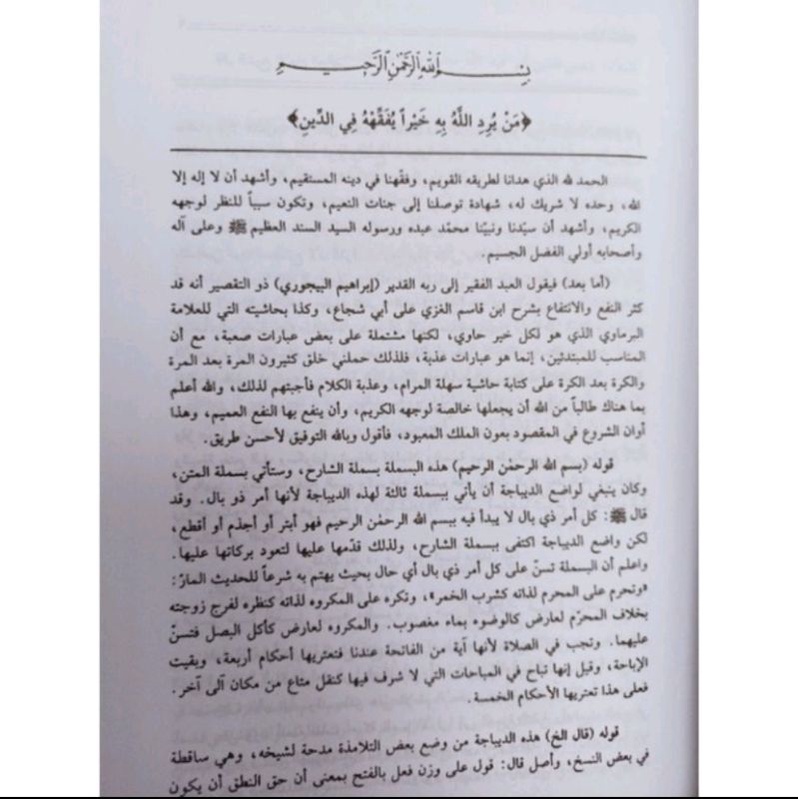 بِسْمِ اللهِ الرَّحْمٰنِ الرَّحِيمِ
﴿مَنْ يُرِدِ اللَّهُ بِهِ خَيْراً يُفَقِّهْهُ فِي الدِّينِ﴾
الحمد لله الذي هدانا لطريقه القويم، وفقّهنا في دينه المستقيم، وأشهد أن لا إله إلا
الله، وحده لا شريك له، شهادة توصلنا إلى جنات النعيم، وتكون سبباً للنظر لوجهه
الكريم، وأشهد أن سيّدنا ونبيّنا محمّد عبده ورسوله السيد السند العظيم ﷺ وعلى آله
وأصحابه أولي الفضل الجسيم.
(أما بعد) فيقول العبد الفقير إلى ربه القدير (إبراهيم البيجوري) ذو التقصير أنه قد
كثر النفع والانتفاع بشرح ابن قاسم الغزي على أبي شجاع، وكذا بحاشيته التي للعلامة
البرماوي الذي هو لكل خير حاوي، لكنها مشتملة على بعض عبارات صعبة، مع أن
المناسب للمبتدئين، إنما هو عبارات عذبة، فلذلك حملني خلق كثيرون المرة بعد المرة
والكرة بعد الكرة على كتابة حاشية سهلة المرام، وعذبة الكلام فأجبتهم لذلك، والله أعلم
بما هناك طالباً من الله أن يجعلها خالصة لوجهه الكريم، وأن ينفع بها النفع العميم، وهذا
أوان الشروع في المقصود بعون الملك المعبود، فأقول وبالله التوفيق لأحسن طريق.
قوله (بسم الله الرحمٰن الرحيم) هذه البسملة بسملة الشارح، وستأتي بسملة المتن،
وكان ينبغي لواضع الديباجة أن يأتي ببسملة ثالثة لهذه الديباجة لأنها أمر ذو بال. وقد
قال ﷺ: كل أمر ذي بال لا يبدأ فيه ببسم الله الرحمٰن الرحيم فهو أبتر أو أجذم أو أقطع،
لكن واضع الديباجة اكتفى ببسملة الشارح، ولذلك قدّمها عليها لتعود بركاتها عليها.
واعلم أن البسملة تسنّ على كل أمر ذي بال أي حال بحيث يهتم به شرعاً للحديث المارّ:
«وتحرم على المحرم لذاته كشرب الخمر»، وتكره على المكروه لذاته كنظره لفرج زوجته
بخلاف المحرّم لعارض كالوضوء بماء مغصوب. والمكروه لعارض كأكل البصل فتسنّ
عليهما. وتجب في الصلاة لأنها آية من الفاتحة عندنا فتعتريها أحكام أربعة، وبقيت
الإباحة، وقيل إنها تباح في المباحات التي لا شرف فيها كنقل متاع من مكان آلى آخر.
فعلى هذا تعتريها الأحكام الخمسة.
قوله (قال الخ) هذه الديباجة من وضع بعض التلامذة مدحة لشيخه، وهي ساقطة
في بعض النسخ، وأصل قال: قول على وزن فعل بالفتح بمعنى أن حق النطق أن يكون